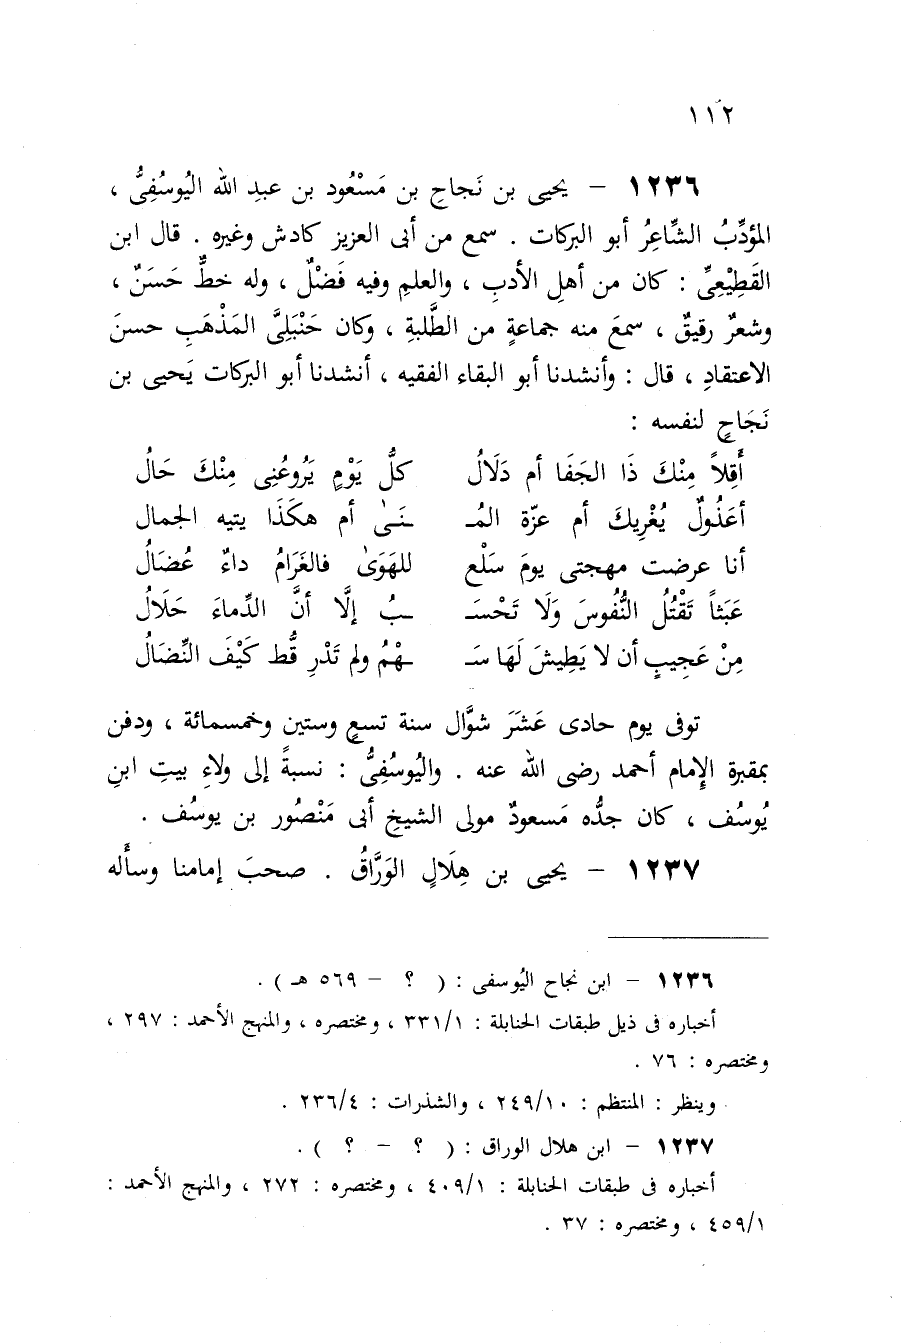 ١١٢
١٢٣٦ – يحيى بن نَجاحِ بن مَسْعُود بن عبدِ الله اليُوسُفِىُّ ،
المؤدِّبُ الشَّاعِرُ أبو البركات . سمع من أبى العزيز كادش وغيره . قال ابن
القَطِيْعِىِّ : كان من أهلِ الأدبِ ، والعلمِ وفيه فَضْلٌ ، وله خطٌّ حَسَنٌ ،
وشعرٌ رقيقٌ ، سمعَ منه جماعةٍ من الطَّلبةِ ، وكان حَنْبَلِىَّ المَذْهَبِ حسنَ
الاعتقادِ ، قال : وأنشدنا أبو البقاء الفقيه ، أنشدنا أبو البركات يَحيى بن
نَجَاحٍ لنفسه :
أَقِلاً مِنْكَ ذَا الجَفَا أم دَلَالُ كلُّ يَوْمٍ يَرُوعُنِى مِنْكَ حَالُ
أعَذُولٌ يُغْرِيكَ أم عزّة المُـ ـنَـىٰ أم هكَذَا يتيه الجمال
أنا عرضت مهجتى يومَ سَلْع للهَوَىٰ فالغَرَامُ داءٌ عُضَالُ
عَبَثاً تَقْتُلُ النُّفُوسَ وَلَا تَحْسَـ ـبُ إلَّا أنَّ الدِّماءَ حَلَالُ
مِنْ عَجِيبٍ أن لا يَطِيشَ لَهَا سَـ ـهْمُ ولم تَدْرِ قُط كَيْفَ النِّضَالُ
توفى يوم حادى عَشَرَ شوَّال سنة تسعٍ وستين وخمسمائة ، ودفن
بمقبرة الإمام أحمد رضى الله عنه . واليُوسُفِىُّ : نسبةً إلى ولاءِ بيتِ ابنِ
يُوسُف ، كان جدُّه مَسعودٌ مولى الشيخِ أبى مَنْصُور بن يوسُف .
١٢٣٧ – يحيى بن هِلَالٍ الوَرَّاقُ . صحبَ إمامنا وسأَله
١٢٣٦ – ابن نجاح اليُوسفى : ( ؟ – ٥٦٩ هـ ) .
أخباره فى ذيل طبقات الحنابلة : ٣٣١/١ ، ومختصره ، والمنهج الأحمد : ٢٩٧ ،
ومختصره : ٧٦ .
وينظر : المنتظم : ٢٤٩/١٠ ، والشذرات : ٢٣٦/٤ .
١٢٣٧ – ابن هلال الوراق : ( ؟ – ؟ ) .
أخباره فى طبقات الحنابلة : ٤٠٩/١ ، ومختصره : ٢٧٢ ، والمنهج الأحمد :
٤٥٩/١ ، ومختصره : ٣٧ .